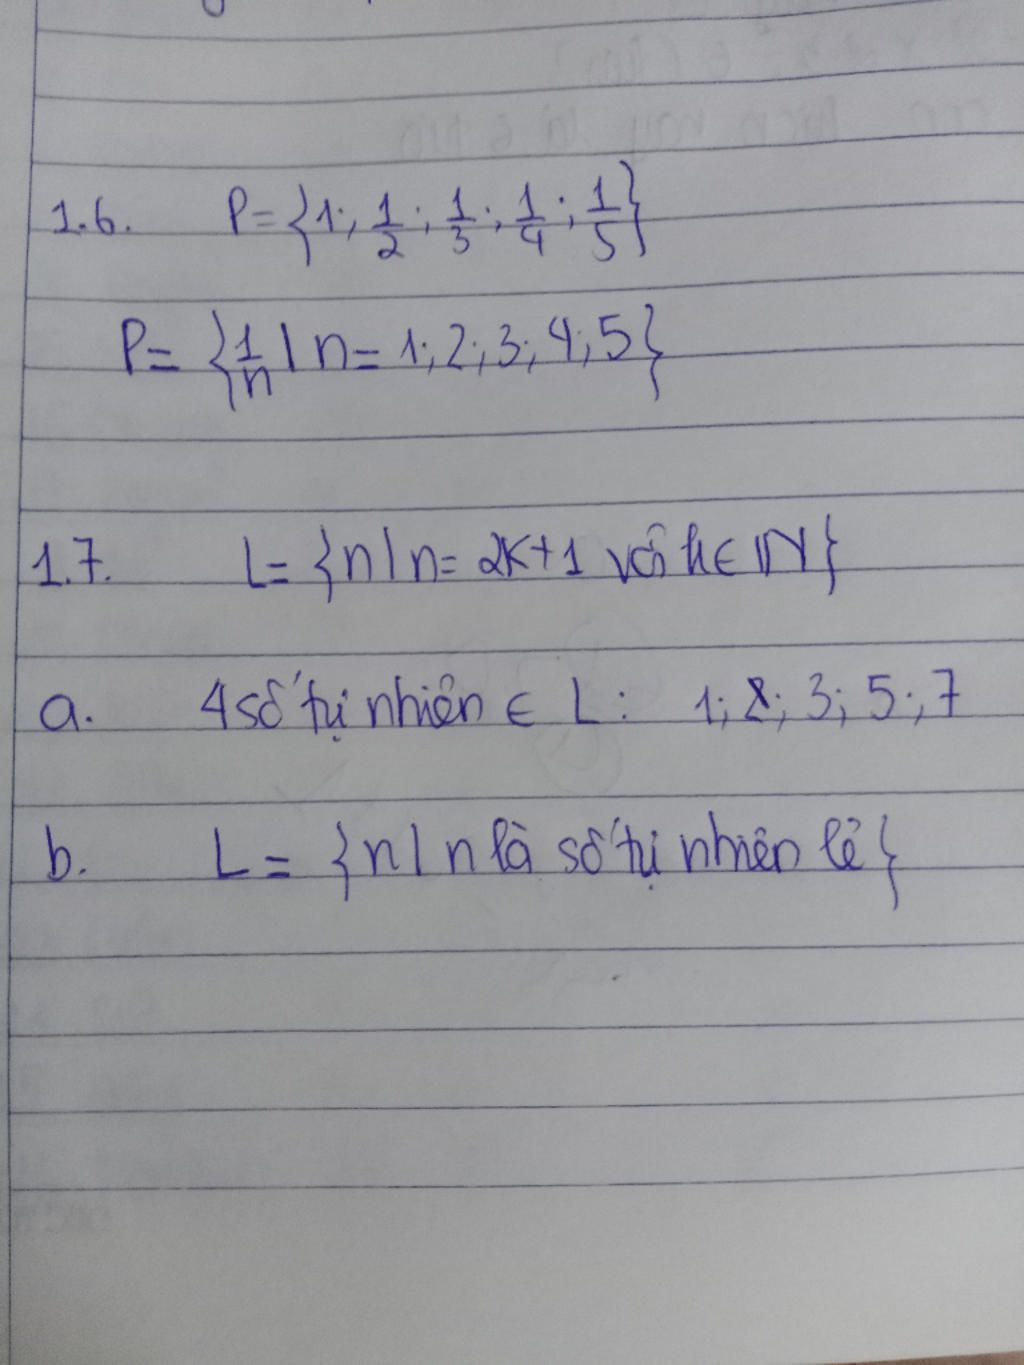 1.6. P = {1; 1/2; 1/3; 1/4; 1/5}
P = {1/n | n = 1; 2; 3; 4; 5}
1.7. L = {n | n = 2k+1 với k ∈ ℕ}
a. 4 số tự nhiên ∈ L: 1; 3; 5; 7
b. L = {n | n là số tự nhiên lẻ}